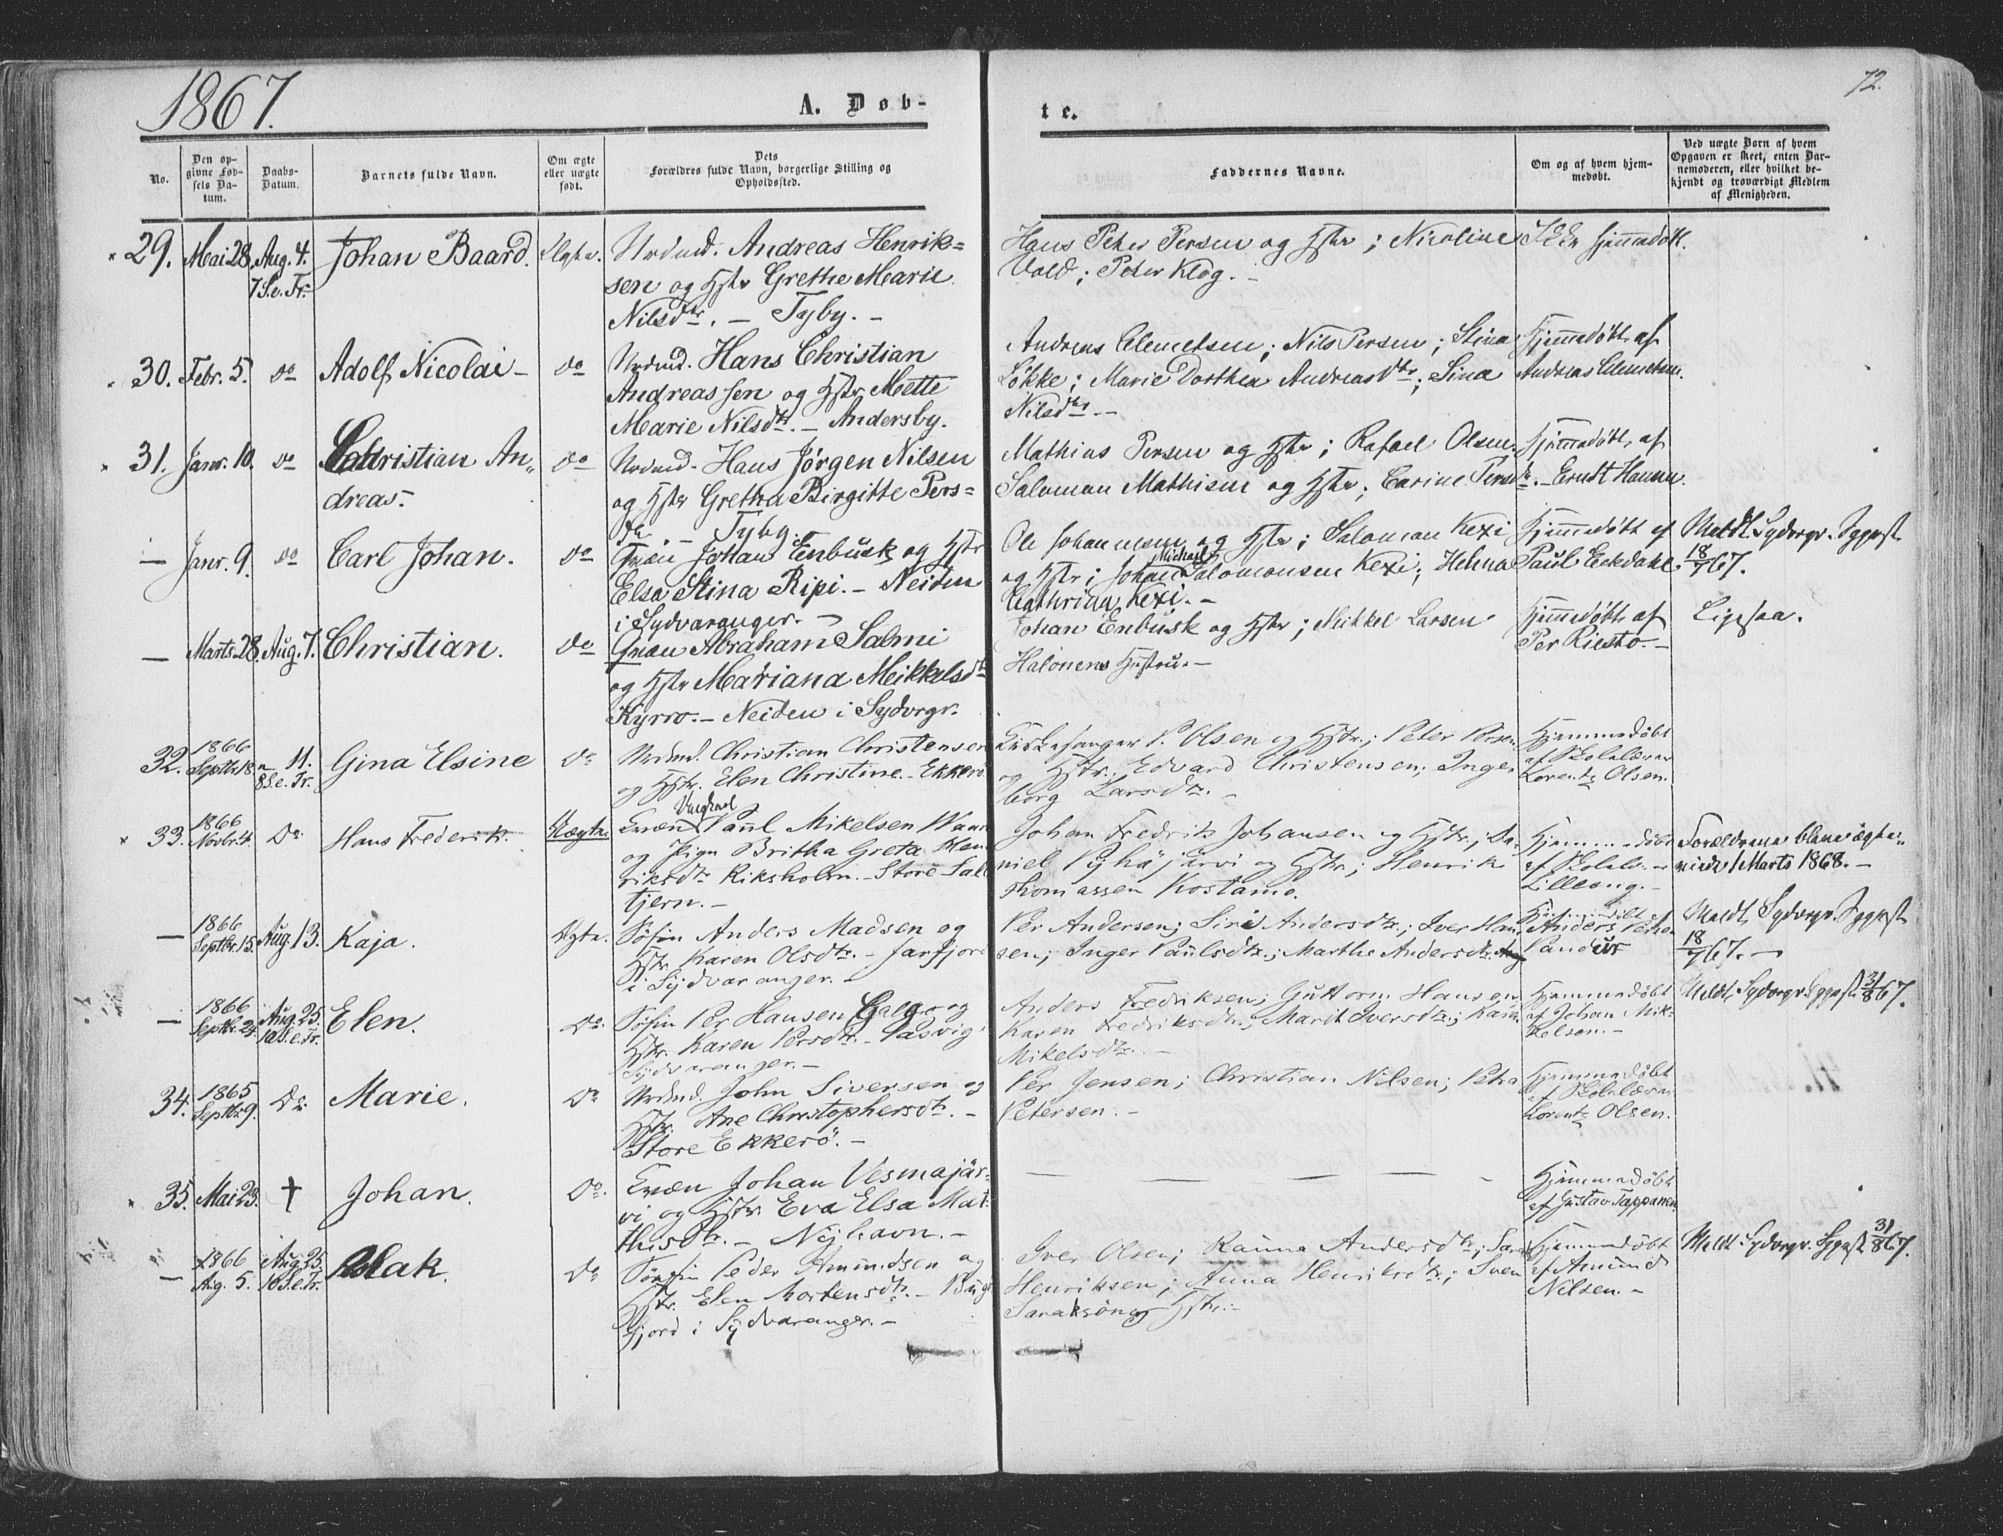 1867.
A. Døb-
te.
72.
No.
Den op-
givne Fød-
sels Da-
tum.
Daabs-
Datum.
Barnets fulde Navn.
Om ægte
eller uægte
født.
Dets
Forældres fulde Navn, borgerlige Stilling og
Opholdssted.
Faddernes Navne.
Om og af hvem hjem-
medøbt.
Ved uægte Børn af hvem
Opgaven er skeet, enten Bar-
nemoderen, eller hvilket be-
kjendt og troværdigt Medlem
af Menigheden.
29. Mai 28. Aug. 4. Johan Baard. Ægte. Nordmd. Andreas Henrik=
7 S. e. Tr. sen og Hstr Grethe Marie
Nilsdtr. - Tyby. -
Hans Peter Persen og Hstr; Nicoline
Vold; Peter Klog. -
Ikke hjemmedøbt.
30. Febr. 5. do Adolf Nicolai - do Nordmd. Hans Christian
Andreassen og Hstr Mette
Marie Nilsdtr. - Andersby.
Andreas Clemetsen; Nils Persen; Stina
Løkke; Marie Dorthea Andreasdtr; Sina
Nilsdtr. -
Hjemmedøbt af
Andreas Clemetsen.
31. Janr. 10. do Christian An- do Nordmd. Hans Jørgen Nilsen
dreas - og Hstr Gretha Birgitte Pers=
dtr. - Tyby.
Mathias Persen og Hstr; Rafael Olsen
Salomon Mathisen og Hstr; Carine Persdtr. -
Hjemmedøbt af
Erndt Hannu.
- Janr. 9. do Carl Johan. do Qvæn Johan Enbusk og Hstr
Elsa Stina Ripi. - Neiden
i Sydvaranger. -
Ole Johannesen og Hstr; Salomon Kexi
og Hstr; Johan Michael Salomonsen Kexi; Helena
Cathrina Kexi. -
Hjemmedøbt af
Paul Eckdahl.
Meldt Sydvrgr. Sggpst
18/7 67.
- Marts 28. Aug. 7. Christian. do Qvæn Abraham Salmi
og Hstr Mariana Meikkelsdtr
Kyrro. - Neiden i Sydvrgr.
Johan Enbusk og Hstr; Mikkel Larsen
Halonens Hustru. -
Hjemmedøbt af
Per Riesto. -
Ligesaa.
32. 1866 Septbr. 18. 11. 8 S. e. Tr. Gina Elsine do Nordmd. Christian Christensen
og Hstr. Elen Christine - Ekkerø.
Kirkesanger P. Olsen og Hstr.; Peter Persen
og Hstr.; Edvard Christensen; Inge-
borg Larsdtr. -
Hjemmedøbt
af Skolelærer
Lorentz Olsen.
33. 1866 Novbr. 4. Do. Hans Frederik. Uægte. Qvæn Ungkarl Paul Mikelsen Waara
og Pigen Britha Greta Hen-
riksdtr Riksholm. - Store Salt-
tjern. -
Johan Fredrik Johansen og Hstr.; Da-
niel Pyhäjärvi og Hstr.; Henrik
Thomassen Kostamo.
Hjemmedøbt
af Skolel.
Lilleeng. -
Forældrene bleve ægte-
viede 1 Marts 1868. -
- 1866 Septbr. 15. Aug. 13. Kaja. Ægte. Søfin Anders Madsen og
Hstr. Karen Olsdtr. - Jarfjord
i Sydvaranger. -
Per Andersen; Siri Andersdtr.; Iver Han-
sen; Inger Paulsdtr.; Marthe Andersdtr.
Hjemmedøbt
Anders Peter
Pandur
Meldt Sydvrgr. Sggpst
18/7 67. -
- 1866 Septbr. 24. Aug. 25. 10 S. e. Tr. Elen. Do. Søfin Per Hansen Galgo og
Hstr. Karen Persdtr. - Pasvig
Sydvaranger. -
Anders Fredriksen; Guttorm Hansen
Karen Fredriksdtr.; Marit Iversdtr.; Karen
Mikelsdtr. -
Hjemmedøbt
af Johan Mik-
kelsen. -
Meldt Sydvrgr. Sggpst 31/8 67.
34. 1865 Septbr. 9. Do. Marie. Do Nordmd. John Siversen og
Hstr. Ane Christophersdtr. -
Store Ekkerö. -
Per Jensen; Christian Nilsen; Petra
Petersen. -
Hjemmedøbt
af Skolelærer
Lorentz Olsen.
35. Mai 23. † Johan. Do. Qvæn Johan Vesmajär-
vi og Hstr. Eva Elsa Mat-
thisdtr. - Nyhavn. -
Hjemmedøbt
af Gustav Tappanen
- 1866 Aug. 5. Aug. 25. 10 S. e. Tr. Isak. Do Søfin Peder Amundsen og
Hstr. Elen Mortensdtr. - Bug-
fjord i Sydvaranger. -
Iver Olsen; Rauna Andersdtr.; Sara
Henriksen; Anna Henriksdtr.; Sven
Saraksön og Hstr. -
Hjemmedøbt
af Amund
Nilsen. -
Meldt Sydvrgr. Sggpst 31/8 67.